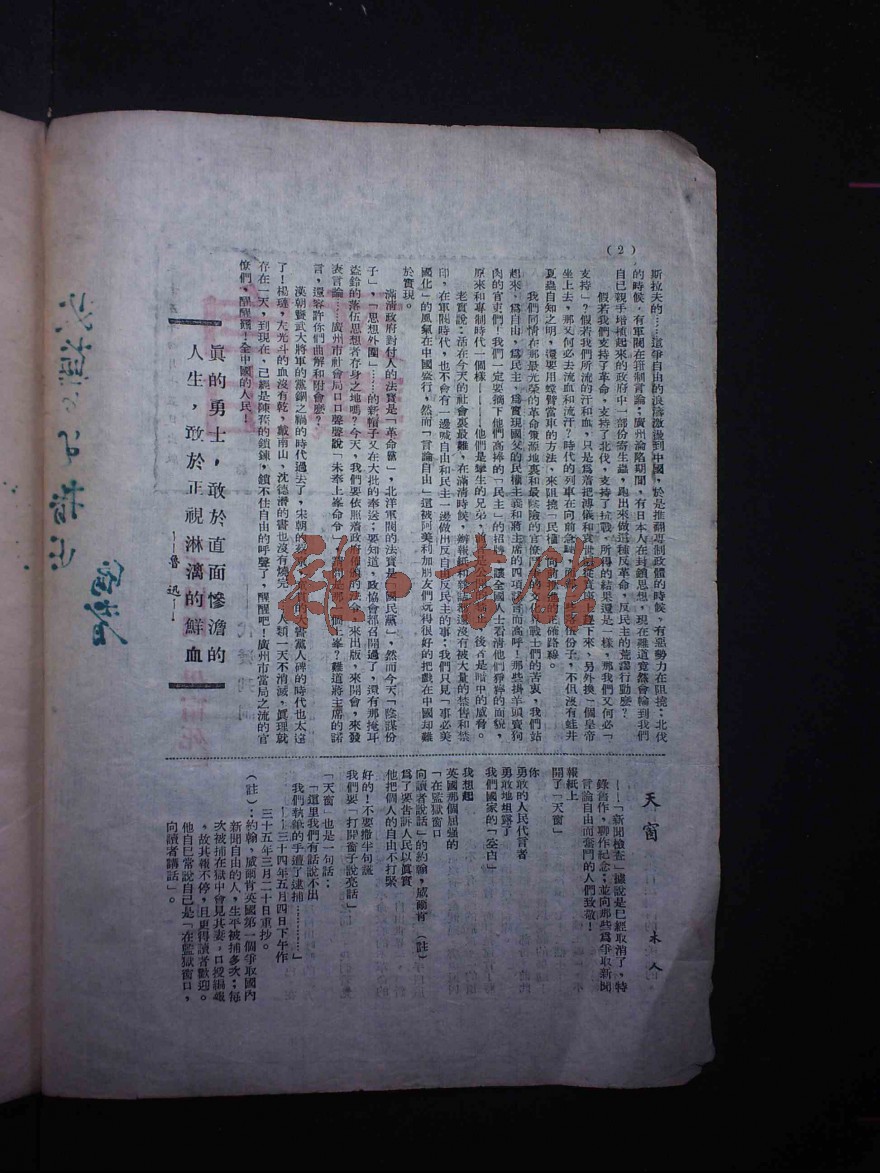 (2)
斯拉夫的……這爭自由的浪濤激盪到中國,於是推翻專制政體的時候,有惡勢力在阻撓;北伐
的時候,有軍閥在箝制言論;廣州淪陷期間,有日本人在封鎖思想,現在難道竟然會輪到我們
自己親手培植起來的政府中一部份寄生蟲,跑出來做這種反革命,反民主的荒謬行動麼?
假若我們支持了革命,支持了北伐,支持了抗戰,所得的結果還是一樣,那我們又何必「
支持」?假若我們所流的汗和血,只是為着把溥儀和袁世凱從寶座上趕下來、另外換一個皇帝
坐上去,那又何必去流血和流汗?時代的列車在向前急駛,而一些落伍份子,不但沒有蛙井
夏蟲自知之明,還要用螳臂當車的方法、來阻撓「民權」向前邁進的正確路線。
我們同情在那最光榮的革命策源地裏和最陰險的官僚作戰的文化戰士們的苦衷,我們站
起來,為自由,為民主,為實現國父的民權主義和蔣主席的四項諾言而高呼!那些掛羊頭賣狗
肉的官吏們!我們一定要摘下他們高捧的「民主」的招牌,讓全國人士看清他們猙獰的面貌,
原來和專制時代一個樣——他們是孿生的兄弟,後者是暗中的威脅。
老實說:活在今天的社會裏最難,在滿清時候,辦報紙和發誌都還沒有被大量的禁售和禁
印,在軍閥時代,也不會有一邊喊自由和民主一邊做出反自由反民主的事;我們只見「事必美
國化」的風氣在中國盛行,然而「言論自由」這被阿美利加朋友們玩得很好的把戲在中國却難
於實現。
滿清政府對付人的法寶是「革命黨」,北洋軍閥的法寶是「國民黨」,然而今天「陰謀份
子」,「思想外圍」……的新帽子又在大批的奉送;要知道,政協會都召開過了,還有那掩耳
盜鈴的落伍思想者存身之地嗎?今天,我們要依照着政府頒佈的法令,來出版,來開會,來發
表言論……廣州市社會局口口聲聲說「未奉上峯命令」,請問是那一個上峯?難道蔣主席的諾
言,還容許你們曲解和附會麼?
漢朝竇武大將軍的黨錮之禍的時代過去了,宋朝的蔡京、大書黨人碑的時代也太遠
了!楊璉,左光斗的血沒有乾,戴南山、沈德潛的書也沒有燒完,人類一天不消滅,眞理就
存在一天,到現在,已經是陳舊的鎖鍊,鎖不住自由的呼聲了,醒醒吧!廣州市當局之流的官
僚們,醒醒罷!全中國的人民!
眞的勇士,敢於直面慘澹的
人生,敢於正視淋漓的鮮血
——魯迅——
天窗
木人
——「新聞檢查」據說是已經取消了,特
錄舊作,聊作紀念;並向那些爲爭取新聞
言論自由而奮鬥的人們致敬!
報紙上
開了「天窗」
你
勇敢的人民代言者
勇敢地坦露了
我們國家的「空白」
我想起
英國那個屈强的
「在監獄窗口
向讀者說話」的約翰,威爾肯 (註)
爲了要告訴人民以眞實
他把個人的自由不打緊
好的!不要撒半句謊
我們要「打開窗子說亮話」
「天窗」也是一句話:
「這里我們有話說不出
我們執紙的手遭了逮捕…………」
——三十四年五月四日下午作
三十五年三月二十日重抄。
(註):約翰,威爾肯英國第一個爭取國內
新聞自由的人,生平被捕多次;每
次被捕在獄中會見其妻,口授編報
,故其報不停,且更得讀者歡迎。
他自己常說自己是「在監獄窗口,
向讀者講話」。
雜·書館